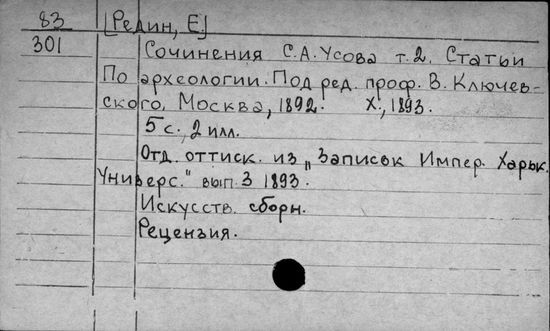 83 [Редин, Е]
301 Сочинения С.А. Усова т. 2. Статьи
По археологии. Под ред. проф. В. Ключев-
ского. Москва, 1892. Х., 1893.
5 с., 2 илл.
Отд. оттиск. из „Записок Импер. Харьк.
Универс." вып. 3 1893.
Искусств. сборн.
Рецензия.